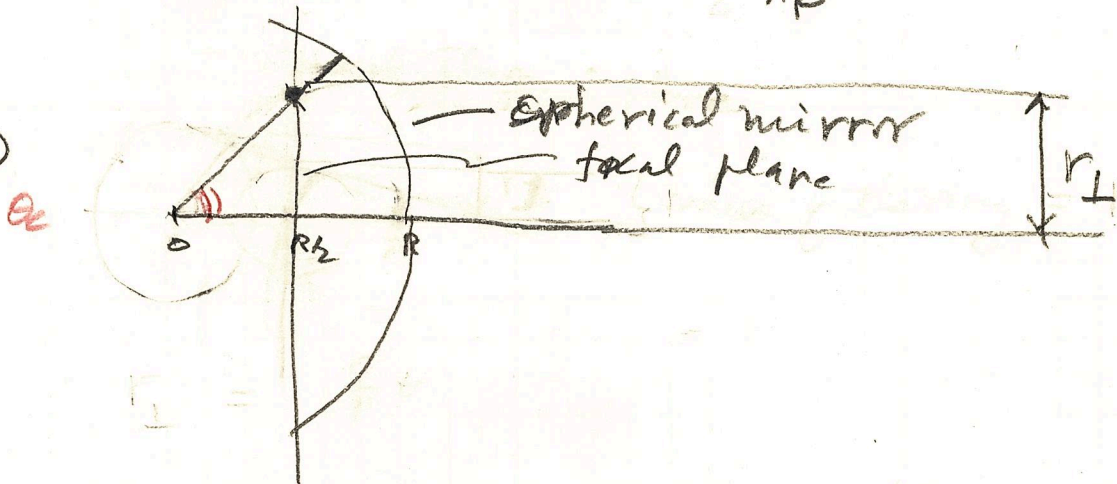 spherical mirror
focal plane
r⊥
θc
O
R/2
R